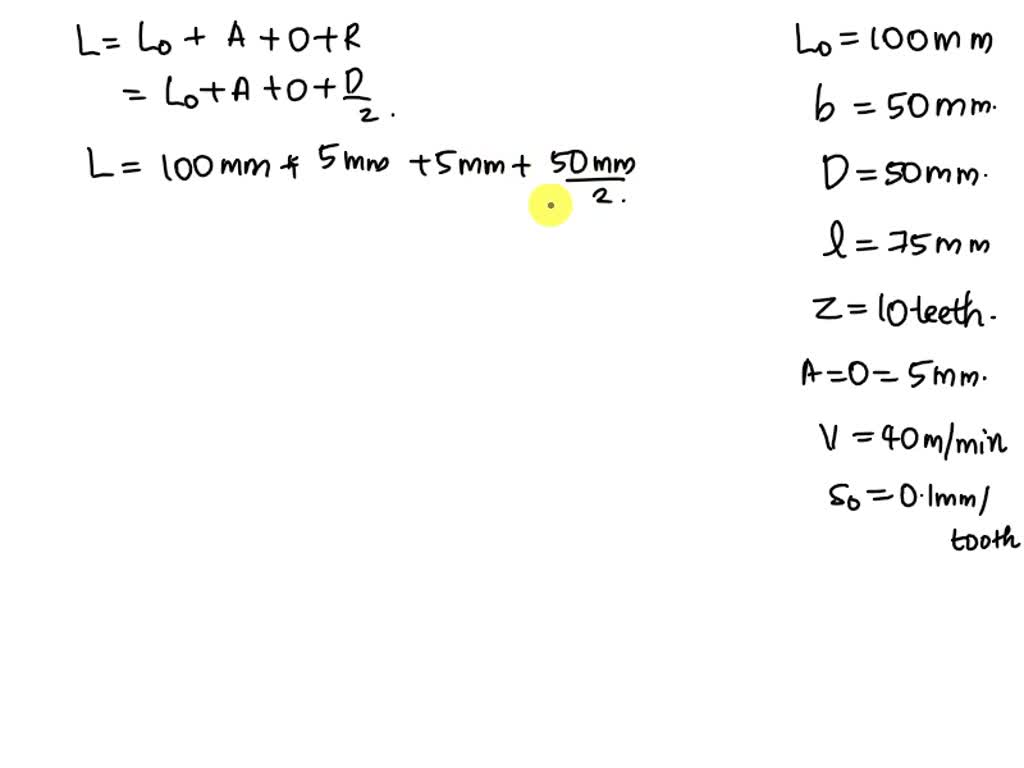 L = L₀ + A + O + R
= L₀ + A + O + D/2.
L = 100 mm + 5 mm + 5 mm + 50 mm/2.
L₀ = 100 mm
b = 50 mm.
D = 50 mm.
l = 75 mm
Z = 10 teeth.
A = O = 5 mm.
V = 40 m/min
S₀ = 0.1 mm/
tooth